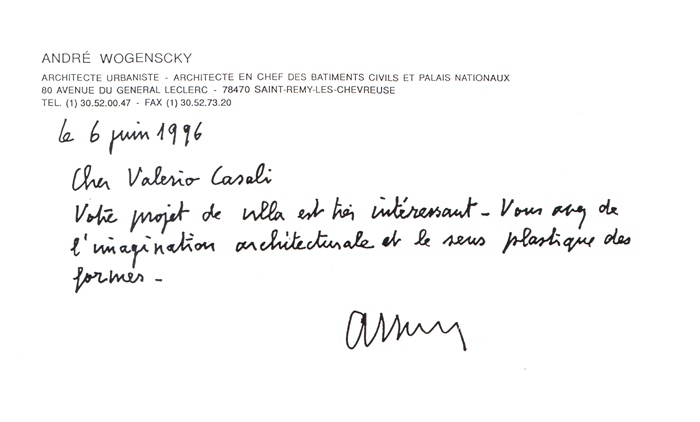 ANDRÉ WOGENSCKY
ARCHITECTE URBANISTE - ARCHITECTE EN CHEF DES BATIMENTS CIVILS ET PALAIS NATIONAUX
80 AVENUE DU GENERAL LECLERC - 78470 SAINT-REMY-LES-CHEVREUSE
TEL. (1) 30.52.00.47 - FAX (1) 30.52.73.20
le 6 juin 1996
Cher Valerio Casali
Votre projet de villa est très intéressant - Vous avez de
l'imagination architecturale et le sens plastique des
formes -